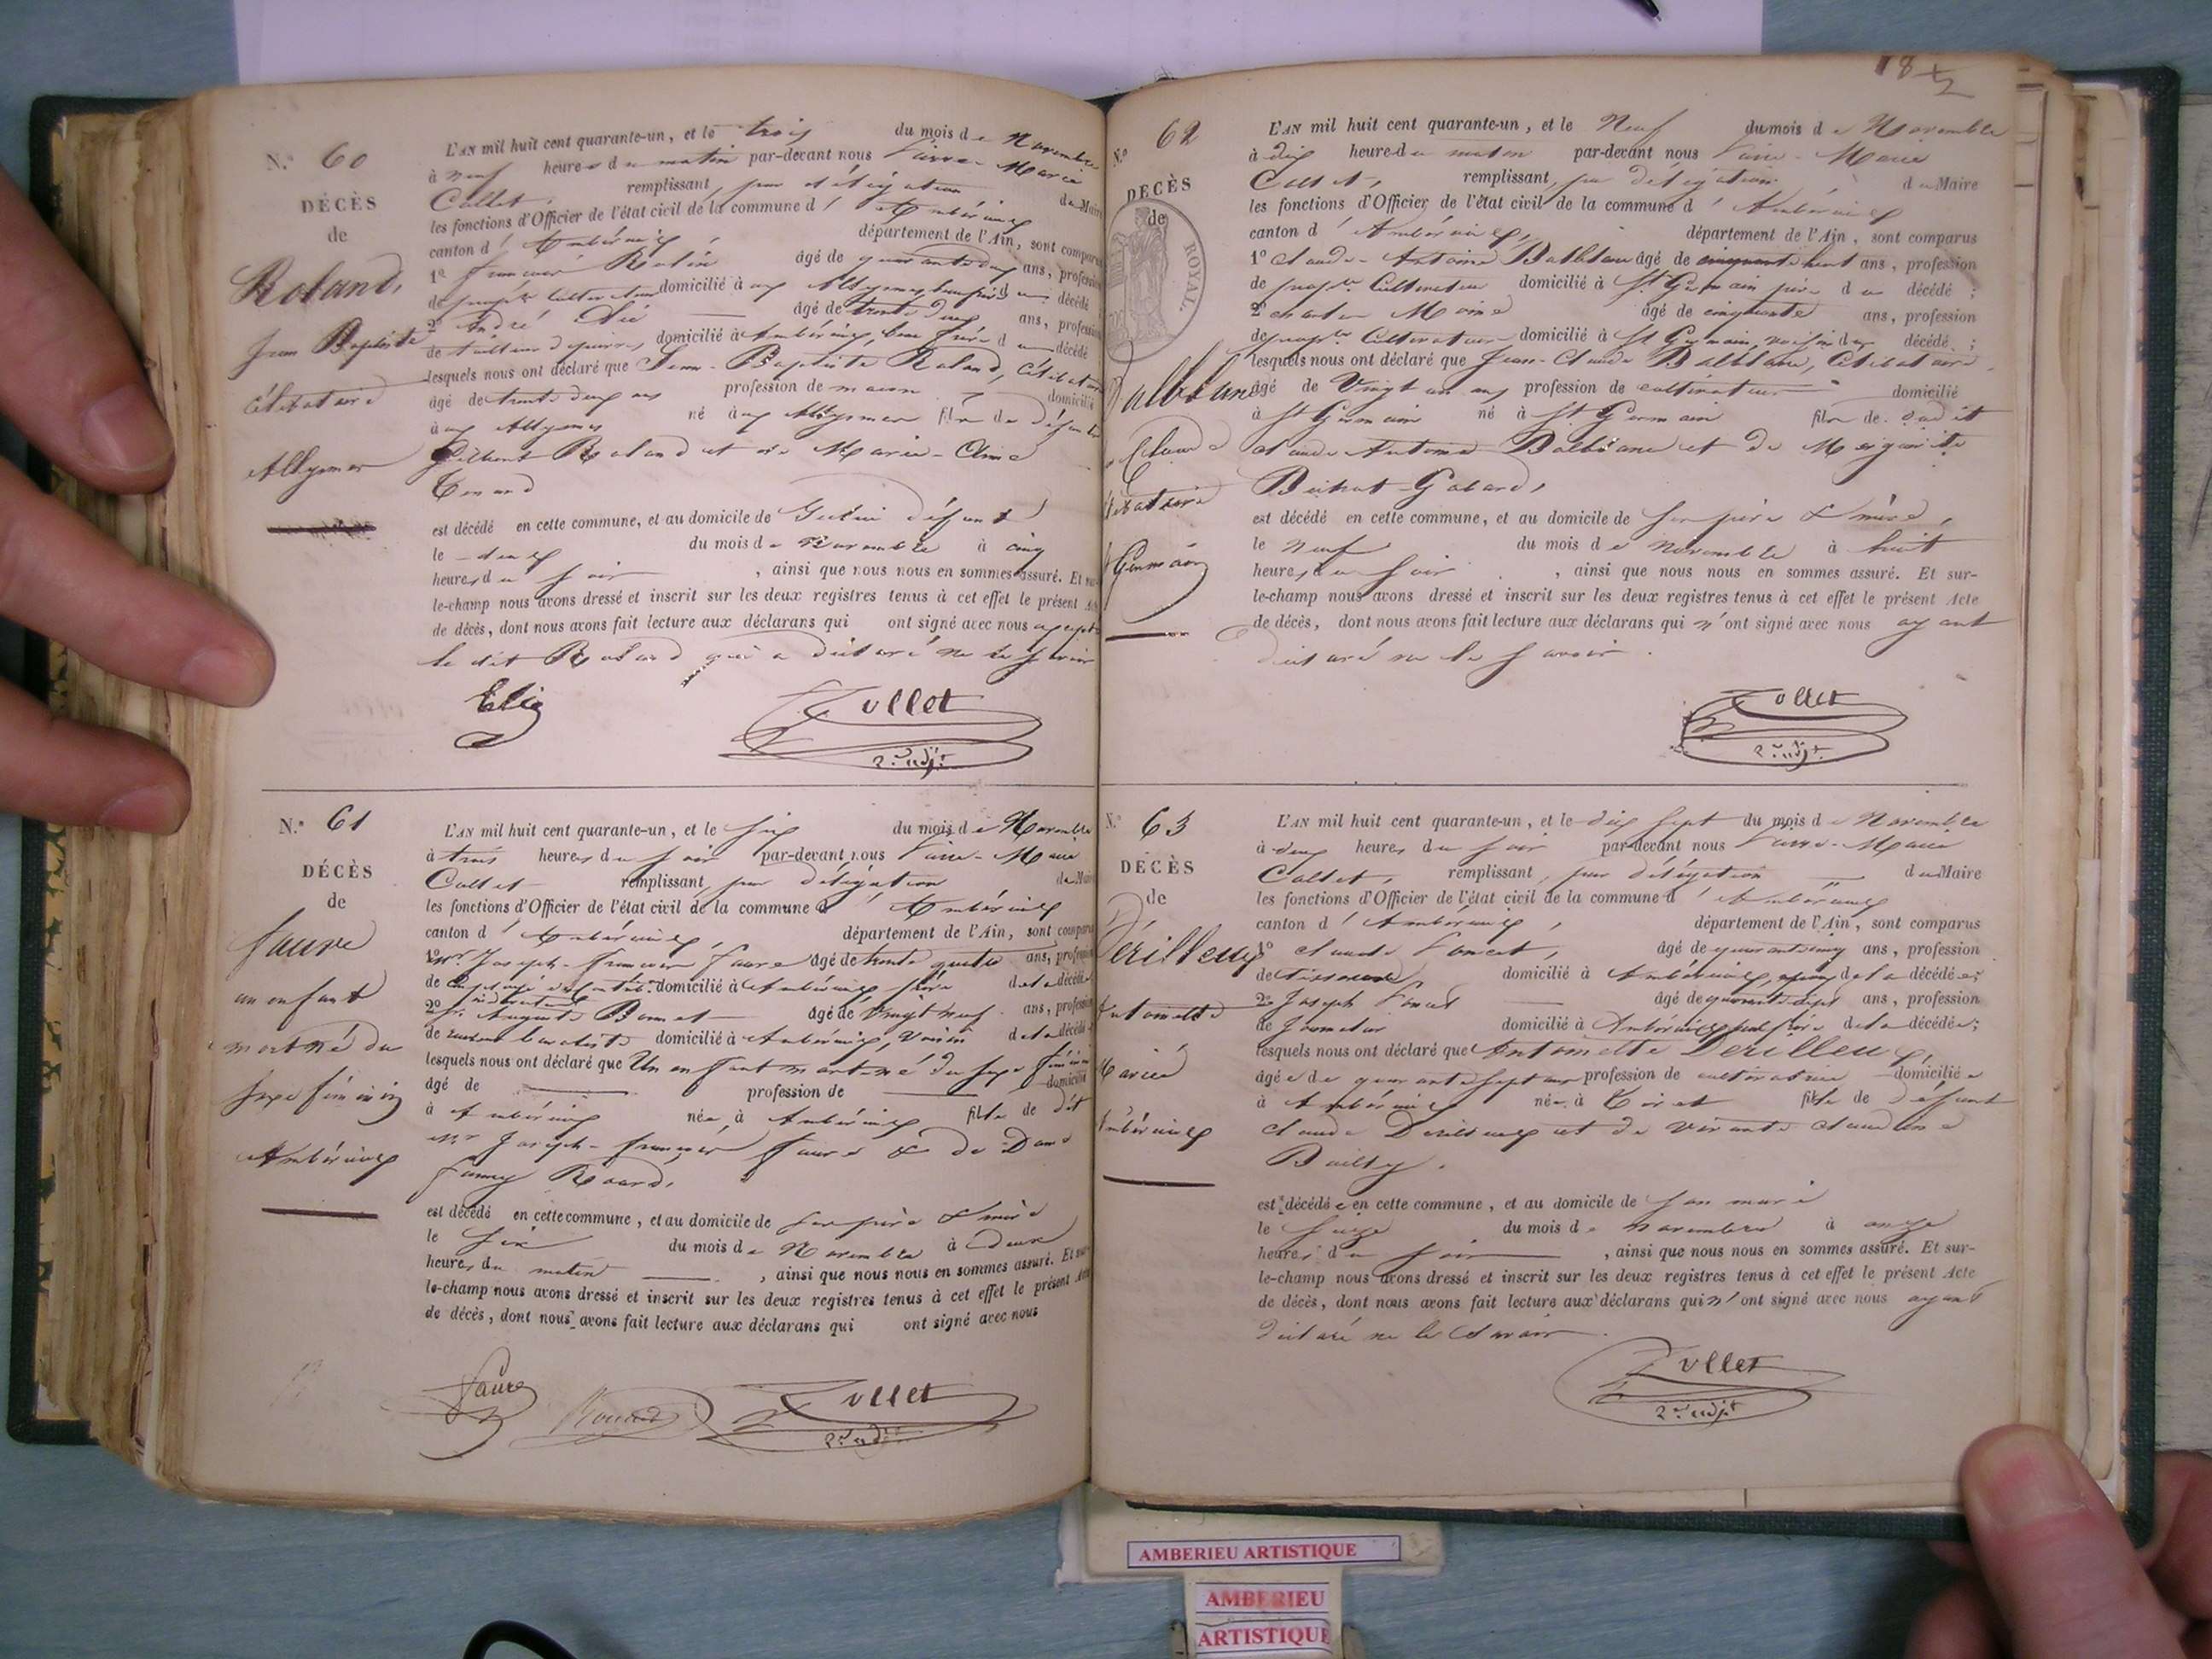 N.º 60
DÉCÈS
de
Roland,
Jean Baptiste
célibataire
Allymes
L'AN mil huit cent quarante-un, et le trois du mois de Novembre
à neuf heures du matin par-devant nous Pierre-Marie
Collet, remplissant, par délégation du Maire
les fonctions d'Officier de l'état civil de la commune d'Ambérieux
canton d'Ambérieux, département de l'Ain, sont comparus
1º françois âgé de quarante deux ans, profession
de prop.re Cultivateur domicilié à aux Allymes, du décédé
2º André Elie âgé de trente deux ans, profession
de tailleur de pierres, domicilié à Ambérieux, beau frère du décédé
lesquels nous ont déclaré que Jean-Baptiste Roland, célibataire
âgé de trente deux ans profession de maçon domicilié
à aux Allymes né à aux Allymes fils de défunt
Gilbert Roland et de Marie-Aimé
est décédé en cette commune, et au domicile de défunt
le deux du mois de Novembre à cinq
heures du soir, ainsi que nous nous en sommes assuré. Et sur-
le-champ nous avons dressé et inscrit sur les deux registres tenus à cet effet le présent Acte
de décès, dont nous avons fait lecture aux déclarans qui ont signé avec nous excepté
le dit Roland qui a déclaré ne le savoir
Elie
Collet
2.e adj.t
N.º 61
DÉCÈS
de
faure
un enfant
mort né du
sexe féminin
Ambérieux
L'AN mil huit cent quarante-un, et le six du mois de Novembre
à trois heures du soir par-devant nous Pierre-Marie
Collet remplissant, par délégation du Maire
les fonctions d'Officier de l'état civil de la commune d'Ambérieux
canton d'Ambérieux, département de l'Ain, sont comparus
1º M.r Joseph-françois faure âgé de trente quatre ans, profession
de employé domicilié à Ambérieux père de la décédée
2º S.r Auguste Bonnet âgé de vingt neuf ans, profession
de domicilié à Ambérieux, voisin de la décédée
lesquels nous ont déclaré que Un enfant mort-né du sexe féminin
âgé de profession de domicilié
à Ambérieux née à Ambérieux fille de dit
M.r Joseph-françois faure & de Dame
fanny Roard,
est décédé en cette commune, et au domicile de ses père & mère
le six du mois de Novembre à deux
heures du matin, ainsi que nous nous en sommes assuré. Et sur-
le-champ nous avons dressé et inscrit sur les deux registres tenus à cet effet le présent Acte
de décès, dont nous avons fait lecture aux déclarans qui ont signé avec nous
Faure
Collet
2.e adj.t
182
N.º 62
DÉCÈS
de
ROYAL.
Balblane
Claude
Germain
L'AN mil huit cent quarante-un, et le Neuf du mois de Novembre
à dix heures du matin par-devant nous Pierre-Marie
Collet, remplissant, par délégation du Maire
les fonctions d'Officier de l'état civil de la commune d'Ambérieux
canton d'Ambérieux, département de l'Ain, sont comparus
1º Claude-Antoine Balblane âgé de cinquante huit ans, profession
de prop.re Cultivateur domicilié à St Germain père du décédé;
2º Moine âgé de cinquante ans, profession
de prop.re Cultivateur domicilié à St Germain, voisin du décédé;
lesquels nous ont déclaré que Jean-Claude Balblane, Célibataire,
âgé de Vingt un ans profession de cultivateur domicilié
à St Germain né à St Germain fils de dudit
Claude Antoine Balblane et de Marguerite
est décédé en cette commune, et au domicile de ses père & mère,
le neuf du mois de novembre à huit
heures du soir, ainsi que nous nous en sommes assuré. Et sur-
le-champ nous avons dressé et inscrit sur les deux registres tenus à cet effet le présent Acte
de décès, dont nous avons fait lecture aux déclarans qui n'ont signé avec nous ayant
déclaré ne le savoir.
Collet
2.e adj.t
N.º 63
DÉCÈS
de
Dérilleux
Antoinette
Mariée
Ambérieux
L'AN mil huit cent quarante-un, et le dix sept du mois de Novembre
à deux heures du soir par-devant nous Pierre-Marie
Collet, remplissant, par délégation du Maire
les fonctions d'Officier de l'état civil de la commune d'Ambérieux
canton d'Ambérieux, département de l'Ain, sont comparus
1º Claude Poncet, âgé de quarante cinq ans, profession
de tisserand domicilié à Ambérieux, époux de la décédée;
2º Joseph Poncet âgé de quarante sept ans, profession
de Journalier domicilié à Ambérieux, beau frère de la décédée;
lesquels nous ont déclaré que Antoinette Derilleu
âgée de quarante sept ans profession de cultivatrice domiciliée
à Ambérieux née à fille de défunt
Claude Derilleux et de vivante Claudine
Bailly.
est décédée en cette commune, et au domicile de son mari
le seize du mois de novembre à onze
heures du soir, ainsi que nous nous en sommes assuré. Et sur-
le-champ nous avons dressé et inscrit sur les deux registres tenus à cet effet le présent Acte
de décès, dont nous avons fait lecture aux déclarans qui n'ont signé avec nous ayant
déclaré ne le savoir.
Collet
2.e adj.t
AMBERIEU ARTISTIQUE
AMBERIEU
ARTISTIQUE